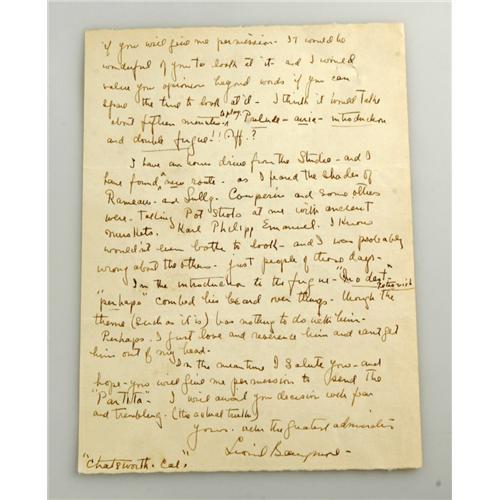 if you will give me permission. It would be
wonderful of you to look at it and I would
value your opinion beyond words if you can
spare the time to look at it - I think it would take
about fifteen minutes to play. Prelude - aria - introduction
and double fugue!! Off.?
I have an hours drive from the Studio - and I
have found, new route - as I feared the shades of
Rameau - and Lully. Couperin and some others
were - taking Pot Shots at me with ancient
muskets. Karl Philipp Emanuel. I know
wouldn't even bother to look - and I was probably
wrong about the others. Just people of those days -
In the introduction to the fugue -
"perhaps" combed his beard over things. Though the
theme (such as it is) has nothing to do with him -
Perhaps. I just love and reverence him and cant get
him out of my head.
In the meantime I salute you - and
hope - you will give me permission to send the
"Partita" - I will await your decision with fear
and trembling. (the actual truth)
Yours. with the greatest admiration
Lionel Barrymore -
"Chatsworth. Cal."